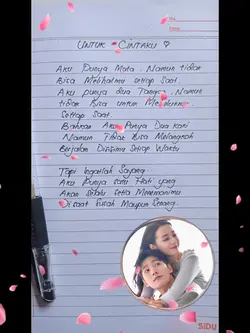 No.
Date:
UNTUK CINTAKU ♡
Aku Punya Mata. Namun tidak
Bisa Melihatmu setiap saat.
Aku punya dua Tangan. Namun
tidak Bisa untuk
Setiap Saat.
Bahkan Aku Punya Dua kaki
Namun Tidak Bisa Melangkah
Berjalan Disisimu Setiap Waktu
Tapi Ingatlah Sayang
Aku Punya satu Hati yang
Akan Selalu Setia Menemanimu
Di saat Susah Maupun Senang.
SiDU